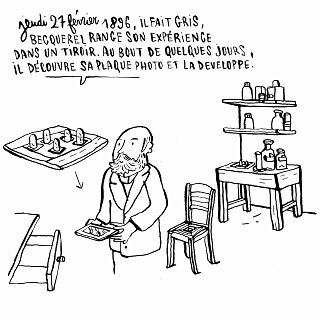 jeudi 27 février 1896, IL FAIT GRIS,
BECQUEREL RANGE SON EXPÉRIENCE
DANS UN TIROIR. AU BOUT DE QUELQUES JOURS,
IL DÉCOUVRE SA PLAQUE PHOTO ET LA DEVELOPPE.